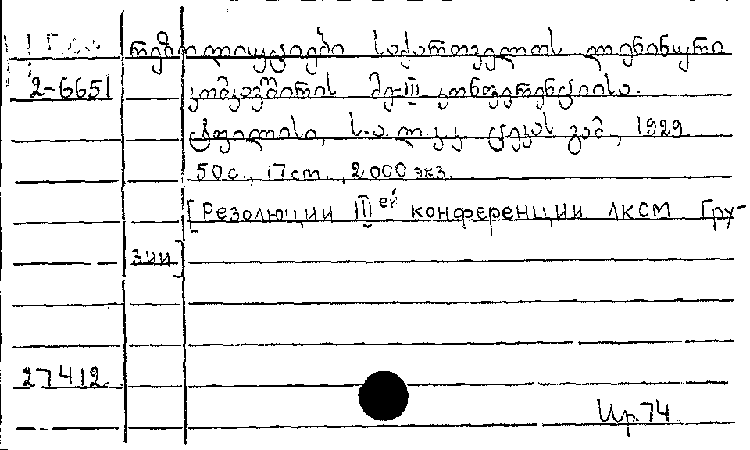 რეზოლიუციები საქართველოს ლენინური
2-6651 კომკავშირის მე-III კონფერენციისა.
ტფილისი, ს.ა.ლ.კ.კ. ცეკას გამ., 1929
50 с., 17 cm., 2000 экз.
[Резолюции III ей конференции ЛКСМ Гру-
зии]
27412
Ир. 74